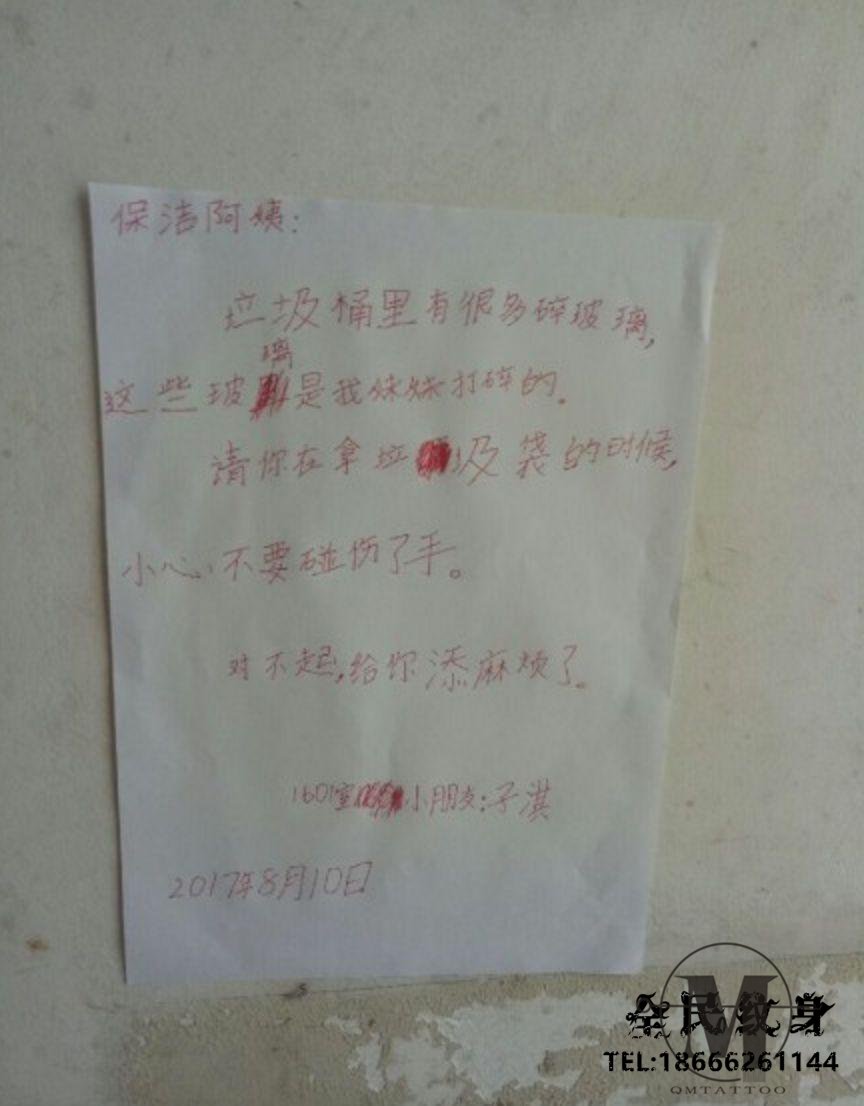 保洁阿姨：
垃圾桶里有很多碎玻璃，
璃
这些玻是我妹妹打碎的。
请你在拿垃圾袋的时候，
小心，不要碰伤了手。
对不起，给你添麻烦了。
1601室小朋友：子淇
2017年8月10日
M
全民纹身
TEL:18666261144
QMTATTOO